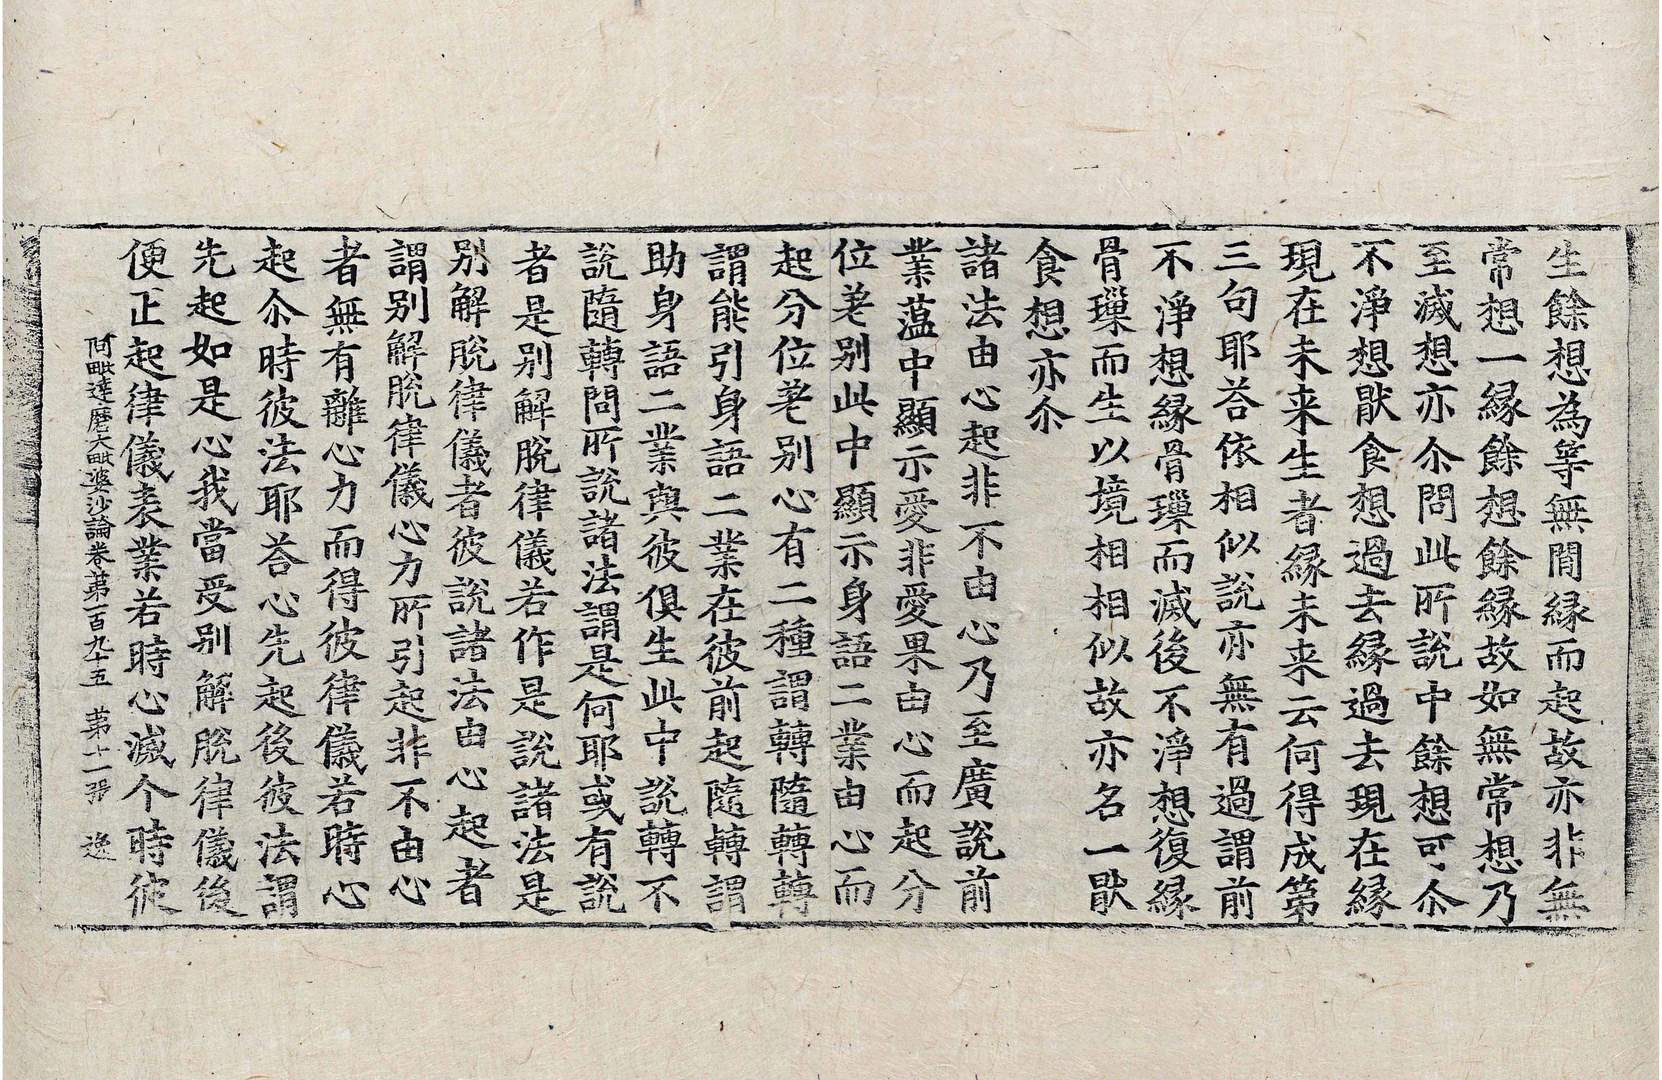 生餘想為等無間緣而起故亦非無
常想一緣餘想餘緣故如無常想乃
至滅想亦尒問此所說中餘想可尒
不淨想猒食想過去緣過去現在緣
現在未来生者緣未来云何得成第
三句耶荅依相似說亦無有過謂前
不淨想緣骨璅而滅後不淨想復緣
骨璅而生以境相相似故亦名一猒
食想亦尒
諸法由心起非不由心乃至廣說前
業蘊中顯示愛非愛果由心而起分
位差別此中顯示身語二業由心而
起分位差别心有二種謂轉隨轉轉
謂能引身語二業在彼前起隨轉謂
助身語二業與彼俱生此中說轉不
說隨轉問所說諸法謂是何耶或有說
者是别解脫律儀若作是說諸法是
别解脫律儀者彼說諸法由心起者
謂别解脫律儀心力所引起非不由心
者無有離心力而得彼律儀若時心
起尒時彼法耶荅心先起後彼法謂
先起如是心我當受别解脫律儀後
便正起律儀表業若時心滅尒時彼
阿毗達磨大毗婆沙論卷第一百九十五 第十一張 逸